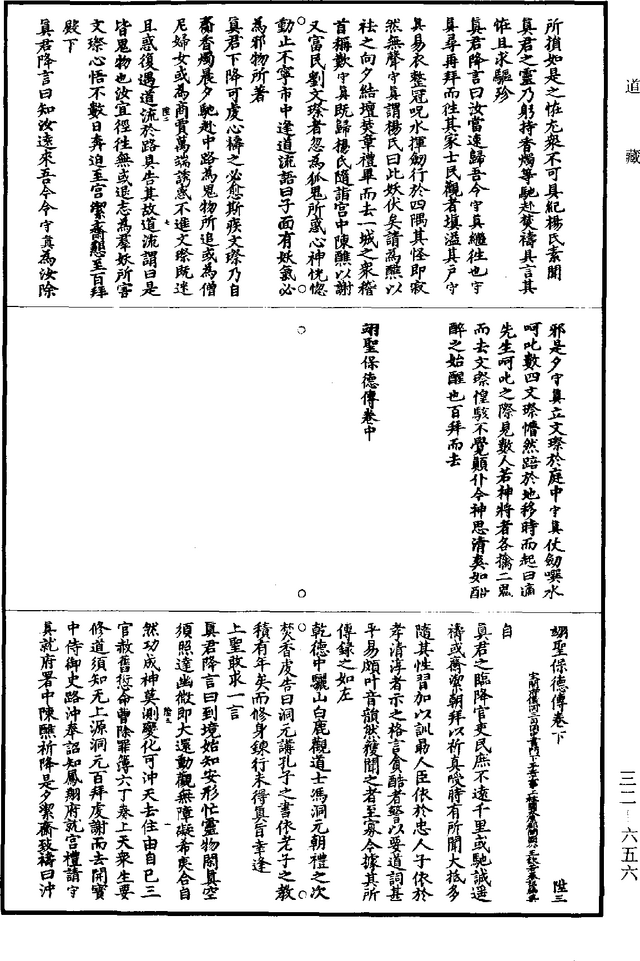 道藏
所損如是之恠尤衆不可具紀楊氏素聞
真君之靈乃躬持香燭等馳赴焚禱具言其
恠且求驅殄
真君降言曰汝當速歸吾令守真繼往也守
真尋再拜而往其家士民觀者填溢其戶守
真易衣整冠呪水揮劒行於四隅其怪即寂
然無聲守真謂楊氏曰此妖伏矣請為醮以
祛之向夕結壇奠章禮畢而去一城之衆稽
首稱歎守真既歸楊氏隨詣宮中陳醮以謝
又富民劉文璨者忽為狐鬼所惑心神恍惚
動止不寧市中逢道流語曰子面有妖氣必
為邪物所著
真君下降可虔心禱之必愈斯疾文璨乃自
齎香燭晨夕馳赴中路為鬼物所追或為僧
尼婦女或為商賈萬端誘惑不進文璨既迷
且惑復遇道流於路具告其故道流謂曰是
皆鬼物也汝宜徑往無或退志為羣妖所害
文璨心悟不數日奔迫至宮潔齋懇至百拜
殿下
真君降言曰知汝遠來吾今令守真為汝除
邪是夕守真立文璨於庭中守真仗劒噀水
呵叱數四文璨懵然踣於地移時而起曰適
先生呵叱之際見數人若神將者各擒二鬼
而去文璨惶駭不覺顛仆今神思清爽如酣
醉之始醒也百拜而去
翊聖保德傳卷中
翊聖保德傳卷下
陞三
自
真君之臨降官吏民庶不遠千里或馳誠遥
禱或齋潔朝拜以祈真受時有所聞大抵多
隨其性習加以訓勗人臣依於忠人子依於
孝清淳者示之格言貪酷者警以要道詞甚
平易頗叶音韻然獲聞之者至寡今據其所
傳錄之如左
乾德中驪山白鹿觀道士馮洞元朝禮之次
焚香虔告曰洞元講孔子之書依老子之教
積有年矣而修身鍊行未得真旨幸逢
上聖敢求一言
真君降言曰到境始知安形忙靈物閑真空
須照達幽微即大還動觀無障礙希夷合自
然功成神莫測變化可沖天去住由自己三
官赦舊愆命曹除罪簿六丁奏上天衆生要
修道須知无上源洞元百拜虔謝而去開寶
中侍御史路沖奉詔知鳳翔府就宮禮請守
真就府署中陳醮祈降是夕潔齋致禱曰沖
三二‐六五六